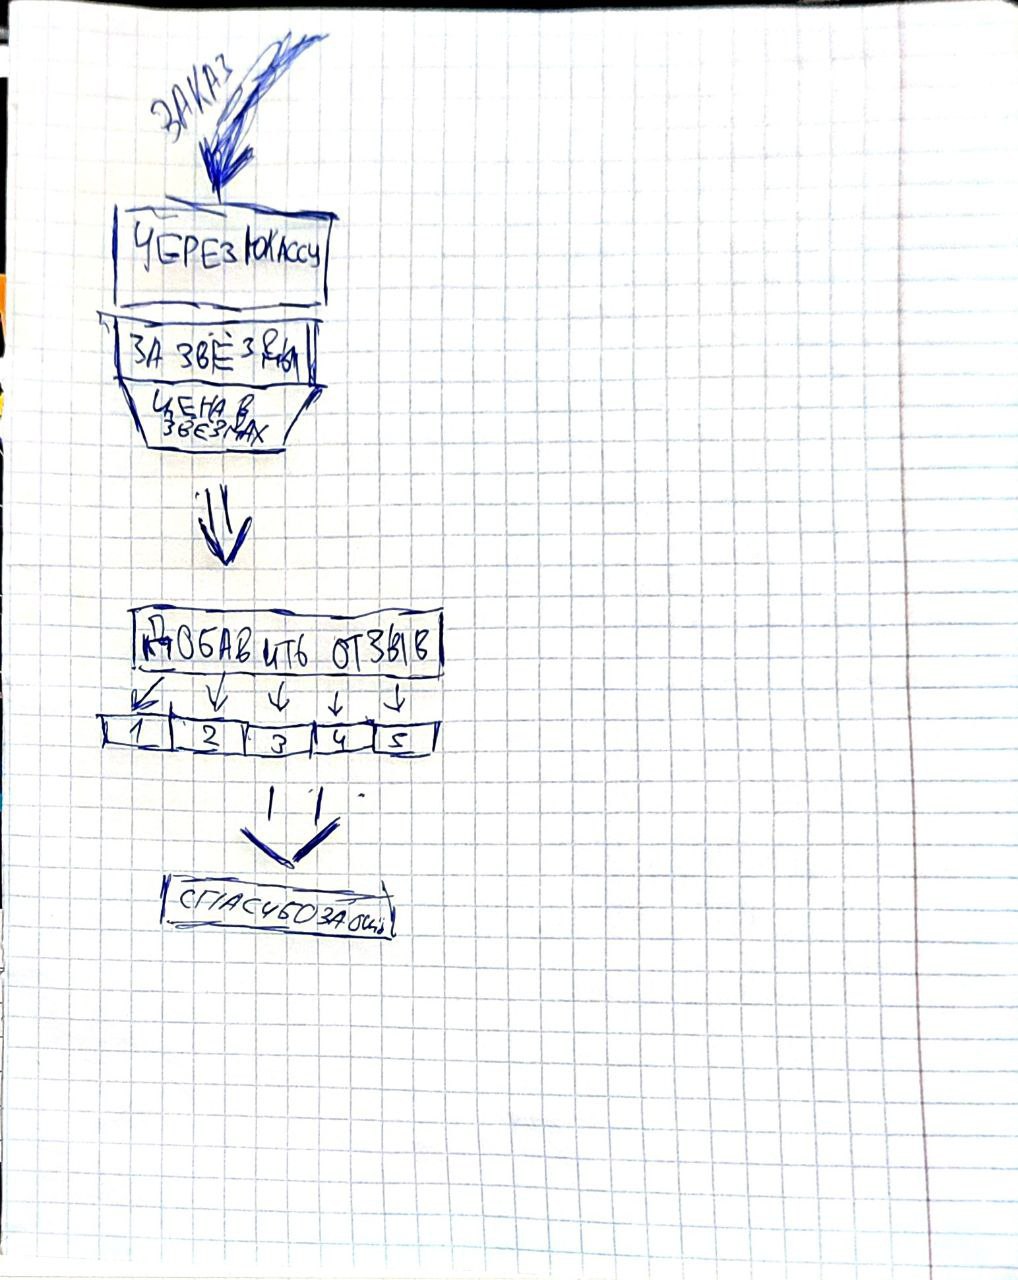 ЗАКАЗ
ЧЕРЕЗ ЮКАССУ
ЗА ЗВЁЗДЫ
ЦЕНА В
ЗВЕЗДАХ
ДОБАВИТЬ ОТЗЫВ
1 2 3 4 5
СПАСИБО ЗА